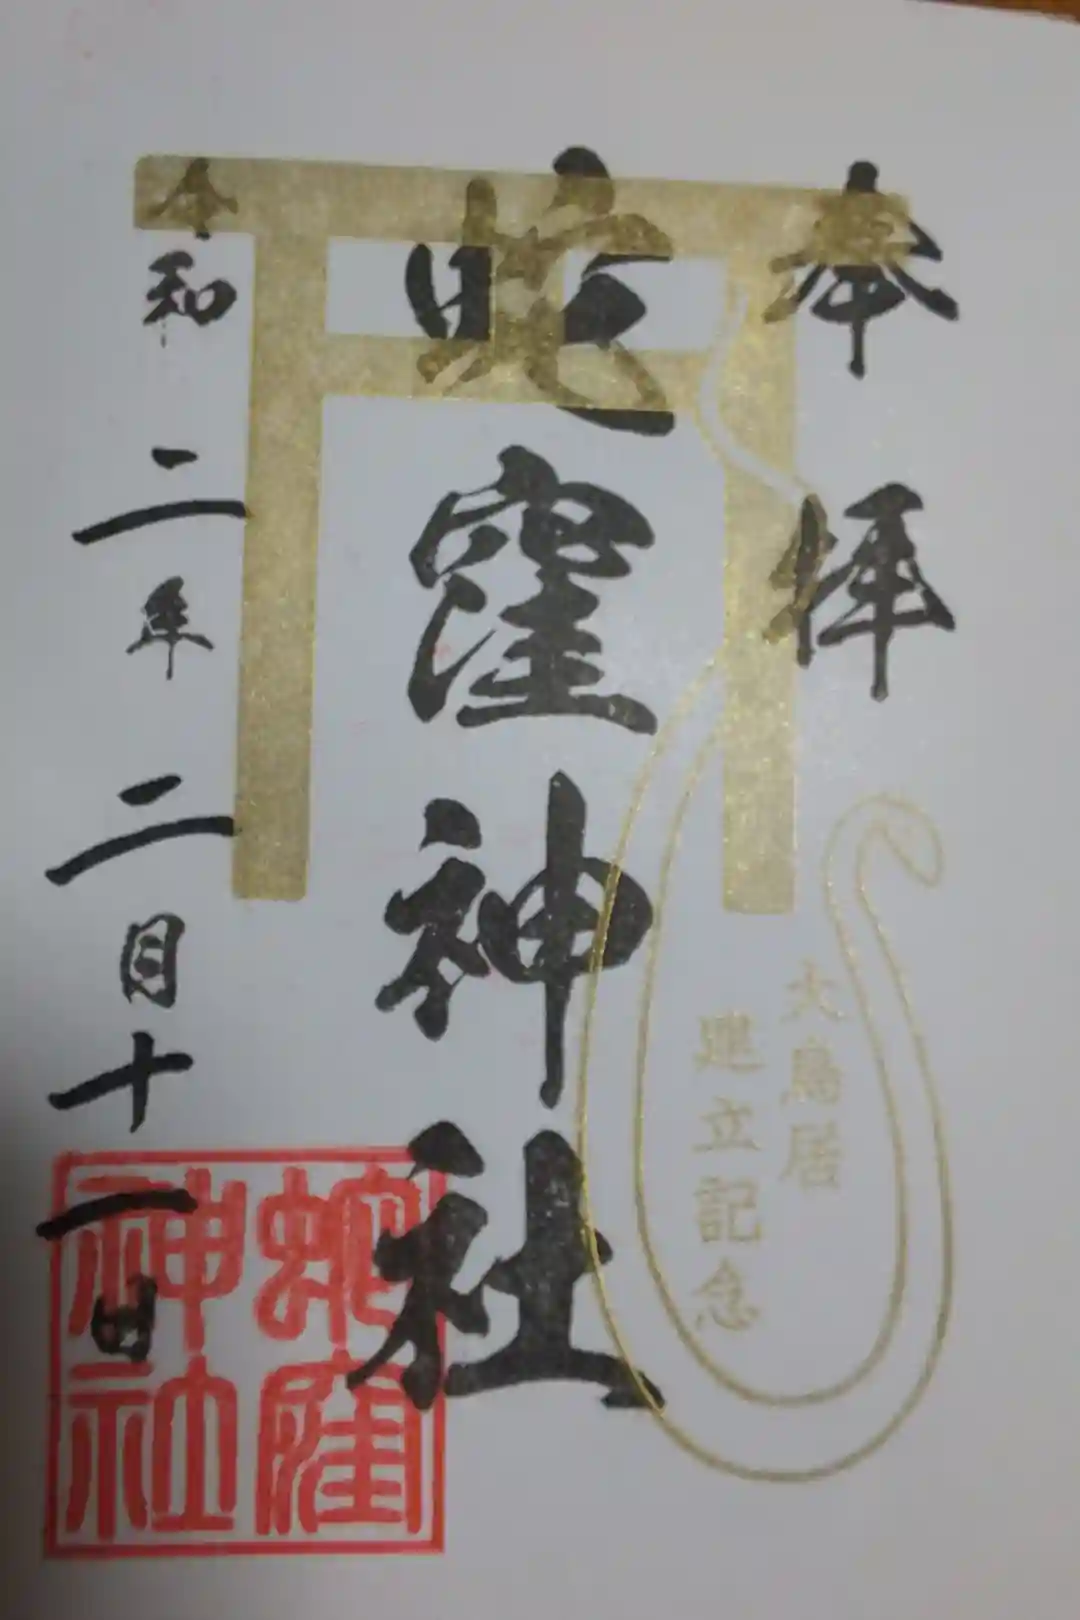 奉拝
蛇窪神社
大鳥居
建立記念
令和二年二月十一日
蛇窪
神社